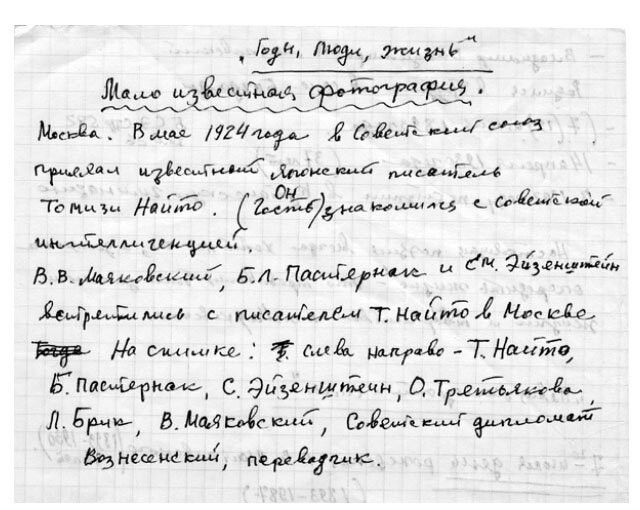 „Годы, люди, жизнь"
Мало известная фотография.
Москва. В мае 1924 года в Советский союз
приехал известный японский писатель
Томизи Найто. (Гость) Он знакомился с советской
интеллигенцией.
В.В. Маяковский, Б.Л. Пастернак и С.М. Эйзенштейн
встретились с писателем Т. Найто в Москве
На снимке: слева направо - Т. Найто,
Б. Пастернак, С. Эйзенштейн, О. Третьякова,
Л. Брик, В. Маяковский, Советский дипломат
Вознесенский, переводчик.